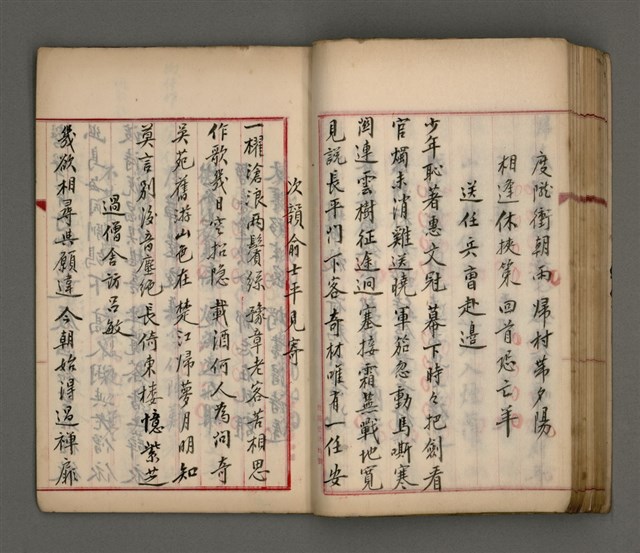 度隴衝朝雨歸村帶夕陽
相逢休挾第回首恐亡羊
送任兵曹赴邊
少年恥著惠文冠幕下時々把劍看
官燭未消雞送曉軍笳忽動馬嘶寒
關連雲樹征途迥塞接霜蕪戰地寬
見說長平門下客奇材唯有一任安
次韻俞士平見寄
一櫂滄浪兩鬢絲豫章老客苦相思
作歌幾日空招隱載酒何人為問奇
吳苑舊游山色在楚江歸夢月明知
莫言別後音塵絕長倚東樓憶紫芝
過僧舍訪呂敏
幾欲相尋與願違今朝始得過禪扉